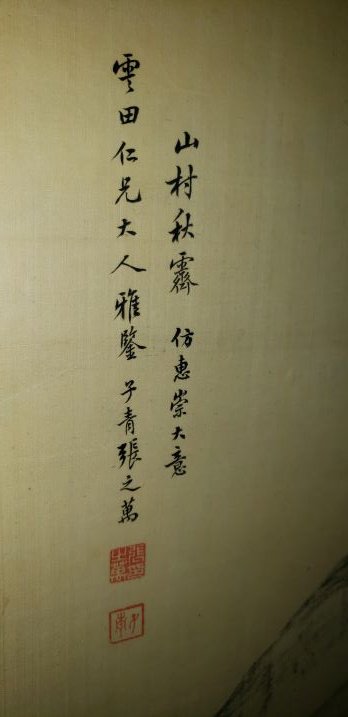 山村秋霽 仿惠崇大意
雲田仁兄大人雅鑒 子青張之萬